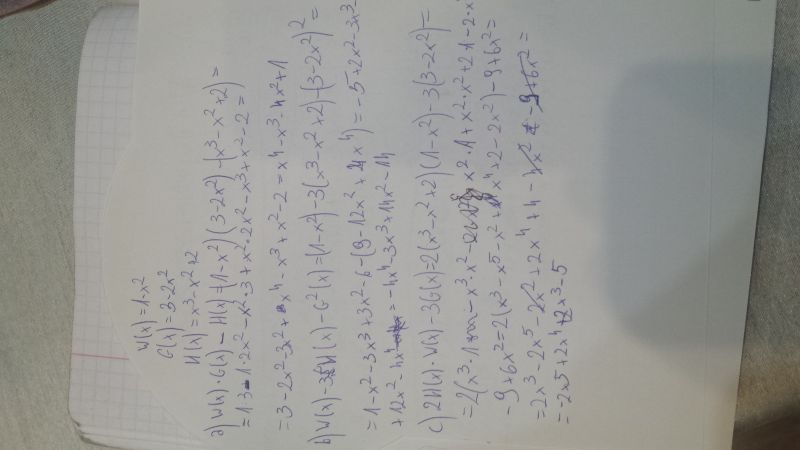 W(x)=1-x²
G(x)=3-2x²
H(x)=x³-x²+2
a) W(x)·G(x)-H(x)=(1-x²)(3-2x²)-(x³-x²+2)=
=1·3-1·2x²-x²·3+x²·2x²-x³+x²-2=
=3-2x²-3x²+2x⁴-x³+x²-2=x⁴-x³-4x²+1
b) W(x)-3H(x)-G²(x)=(1-x²)-3(x³-x²+2)-(3-2x²)²=
=1-x²-3x³+3x²-6-(9-12x²+4x⁴)=-5+2x²-3x³
+12x²-4x⁴=-4x⁴-3x³+14x²-14
c) 2H(x)·W(x)-3G(x)=2(x³-x²+2)(1-x²)-3(3-2x²)=
=2(x³·1-x³·x²-x²·1+x²·x²+2·1-2·x
-9+6x²=2(x³-x⁵-x²+x⁴+2-2x²)-9+6x²=
=2x³-2x⁵-2x²+2x⁴+4-4x²-9+6x²=
=-2x⁵+2x⁴+2x³-5